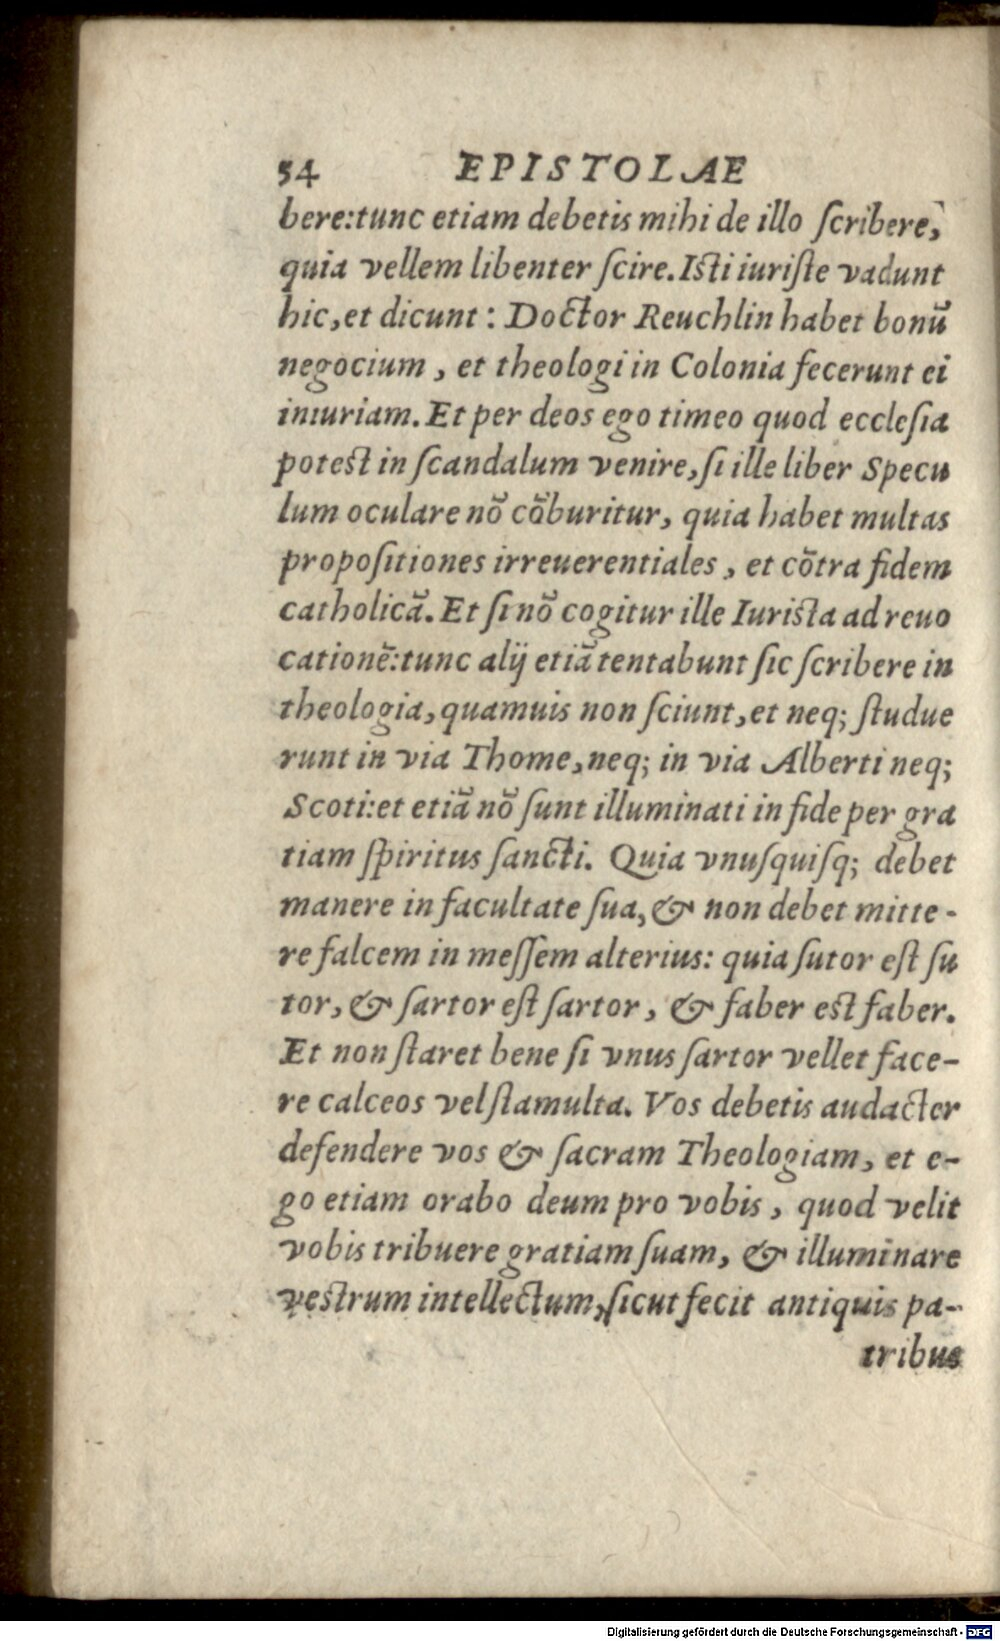 54 EPISTOLAE
bere:tunc etiam debetis mihi de illo ſcribere,
quia vellem libenter ſcire. Iſti iuriſte vadunt
hic, et dicunt : Doctor Reuchlin habet bonũ
negocium , et theologi in Colonia fecerunt ei
iniuriam. Et per deos ego timeo quod eccleſia
poteſt in ſcandalum venire, ſi ille liber Specu
lum oculare nõ cõburitur, quia habet multas
propoſitiones irreuerentiales , et cõtra fidem
catholicã. Et ſi nõ cogitur ille Iuriſta ad reuo
cationẽ:tunc alij etiã tentabunt ſic ſcribere in
theologia, quamuis non ſciunt, et neq; ſtudue
runt in via Thome, neq; in via Alberti neq;
Scoti:et etiã nõ ſunt illuminati in fide per gra
tiam ſpiritus ſancti. Quia vnuſquiſq; debet
manere in facultate ſua, & non debet mitte-
re falcem in meſſem alterius: quia ſutor eſt ſu
tor, & ſartor eſt ſartor , & faber eſt faber.
Et non ſtaret bene ſi vnus ſartor vellet face-
re calceos vel ſtamulta. Vos debetis audacter
defendere vos & ſacram Theologiam, et e-
go etiam orabo deum pro vobis , quod velit
vobis tribuere gratiam ſuam, & illuminare
veſtrum intellectum, ſicut fecit antiquis pa-
tribus
Digitalisierung gefördert durch die Deutsche Forschungsgemeinschaft - DFG